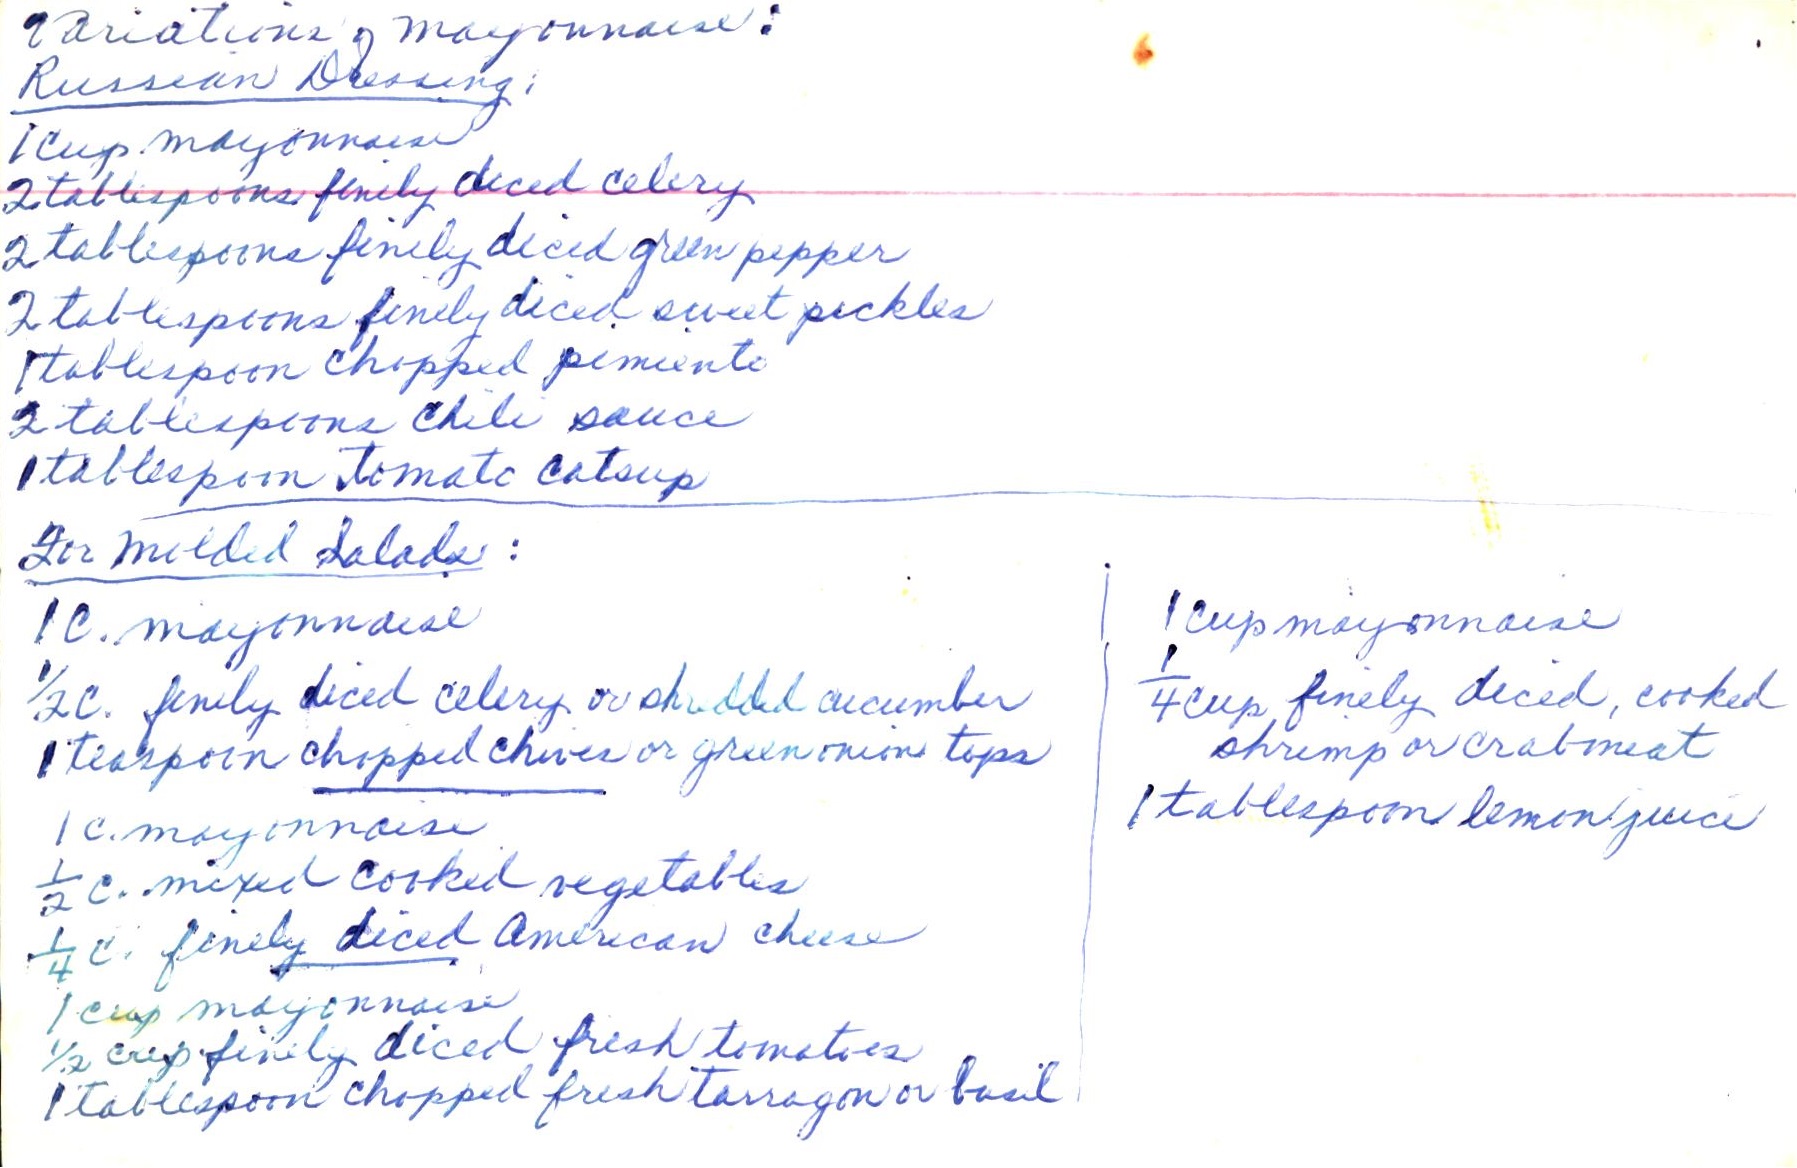 Variations of mayonnaise:
Russian Dressing:
1 cup mayonnaise
2 tablespoons finely diced celery
2 tablespoons finely diced green pepper
2 tablespoons finely diced sweet pickles
1 tablespoon chopped pimiento
2 tablespoons chili sauce
1 tablespoon tomato catsup
For Molded Salads:
1 C. mayonnaise
1/2 C. finely diced celery or shredded cucumber
1 teaspoon chopped chives or green onion tops
1 C. mayonnaise
1/2 C. mixed cooked vegetables
1/4 C. finely diced American cheese
1 cup mayonnaise
1/2 cup finely diced fresh tomatoes
1 tablespoon chopped fresh tarragon or basil
1 cup mayonnaise
1/4 cup finely diced, cooked
shrimp or crabmeat
1 tablespoon lemon juice